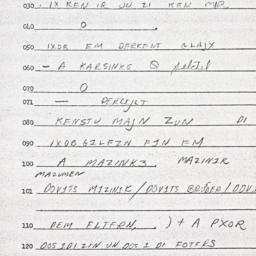 030. IX KEN IR UN ZI KEN MIR
040. O
050 IXOB EM DERKENT BLAJY
060 - A KARSINKE
070 O
071 — DERCIJLT
080 KENSTU MAJN ZUN DI
090 IXOBGILEZN FIN EM
100 A MAZINK3 MAZINIR
MAZUMEN
101 DOVITS MIZINIK / DOVITS BEFORE / DOV
110 DEM ELTERN, ) + A PXOR
120 DOSIDIZIN UN DOS I DI FOTERS